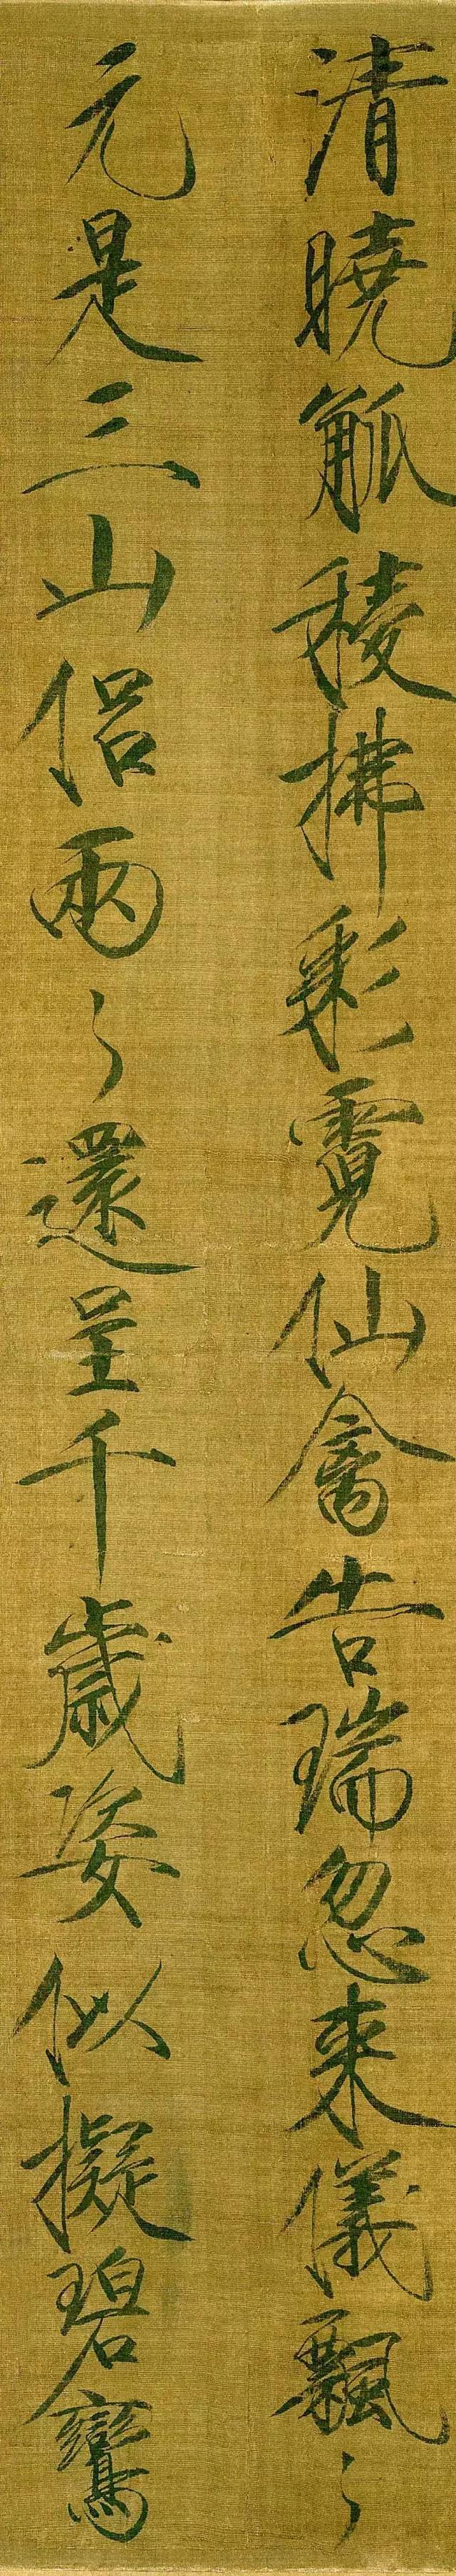 清曉觚稜拂彩霓仙禽告瑞忽来儀飄〻
元是三山侣兩〻還呈千歲姿似擬碧鸞